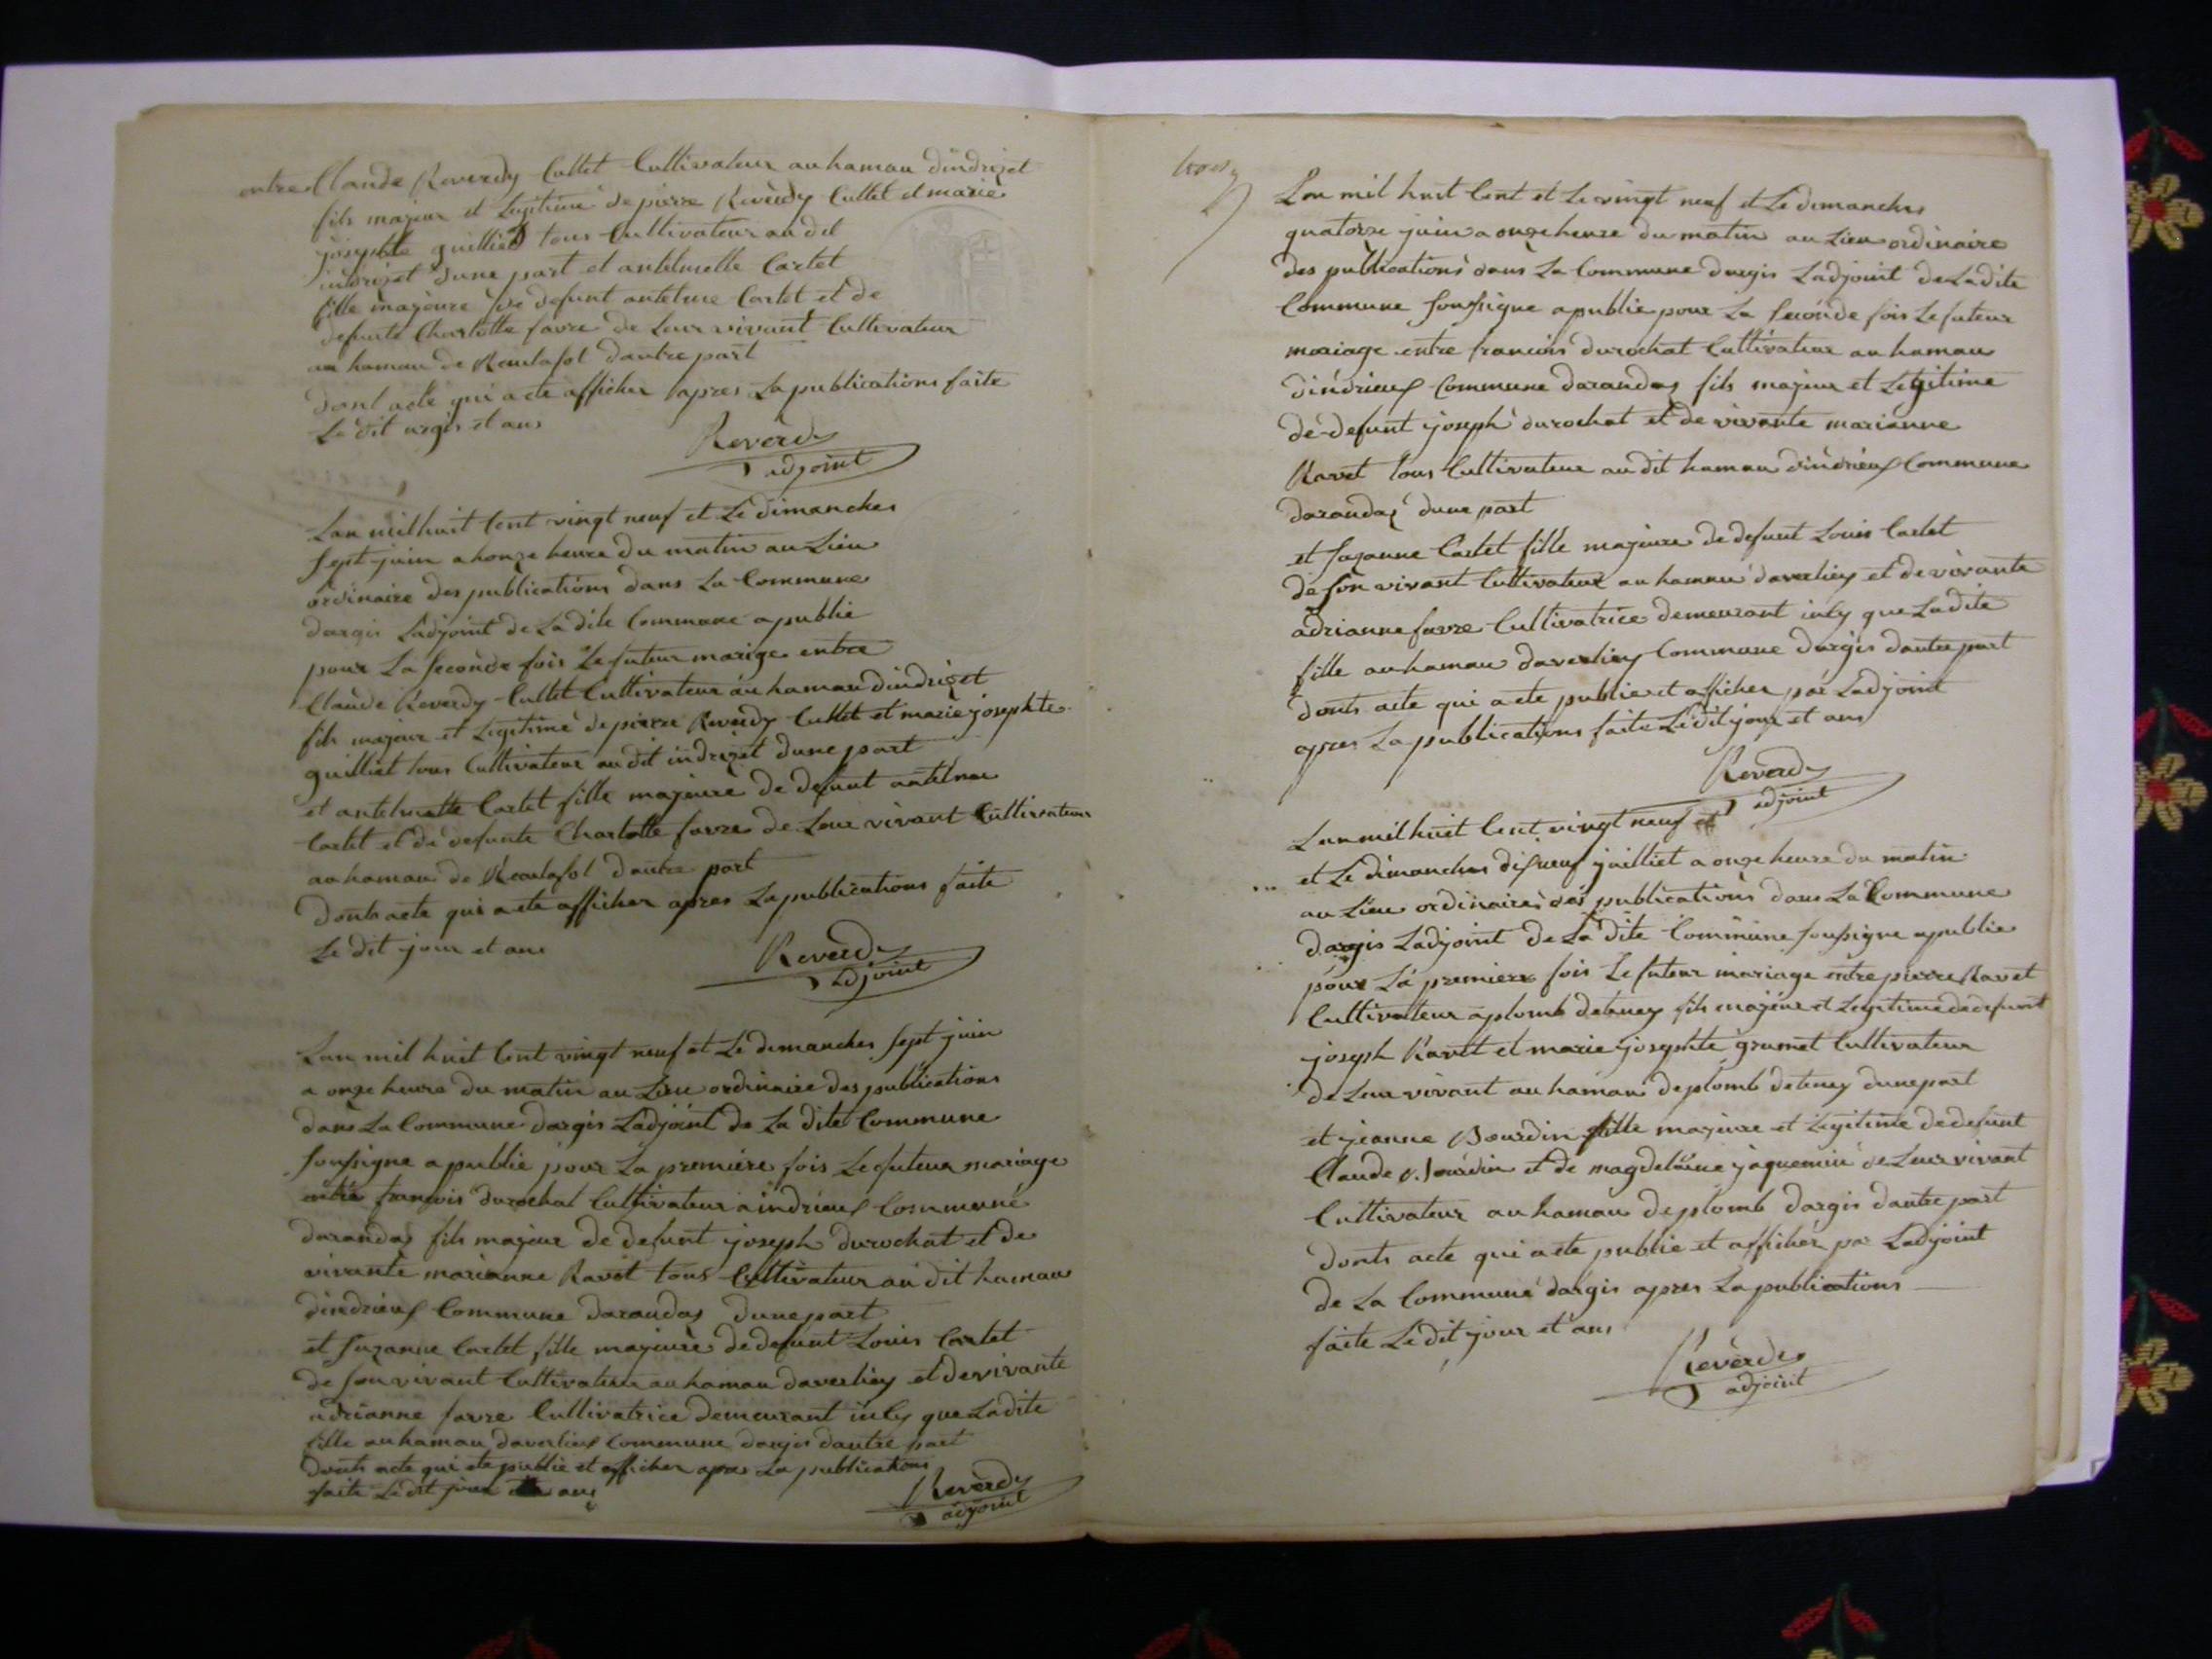 entre Claude Reverdy Cullet Cultivateur au hamau dindrizet
fils majeur et Legitime de pierre Reverdy Cullet et marie
josephte guilliet tous Cultivateur au dit
indrizet dune part et antelmette Cartet
fille majeure de defunt antelme Cartet et de
defunte Charlotte favre de Leur vivant Cultivateur
au hamau de Reculafol dautre part
dont acte qui a ete afficher apres La publications faite
Le dit argis et ans
Reverdy
adjoint
Lan mil huit Cent vingt neuf et Le dimanches
Sept juin a honze heure du matin au Lieu
ordinaire des publications dans La Commune
dargis Ladjoint de La dite Commune a publie
pour La Seconde fois Le futeur marige entre
Claude Reverdy Cullet Cultivateur au hamau dindrizet
fils majeur et Legitime de pierre Reverdy Cullet et marie josephte
guilliet tous Cultivateur au dit indrizet dune part
et antelmette Cartet fille majeure de defunt antelme
Cartet et de defunte Charlotte favre de Leur vivant Cultivateur
au hamau de Reculafol dautre part
donts acte qui a ete afficher apres La publications faite
Le dit jour et ans
Reverdy
adjoint
Lan mil huit Cent vingt neuf et Le dimanches Sept juin
a onze heure du matin au Lieu ordinaire des publications
dans La Commune dargis Ladjoint de La dite Commune
Sousigne a publie pour La premiere fois Le futeur mariage
entre francois durochat Cultivateur a indrieux Commune
darandas fils majeur de defunt joseph durochat et de
vivante marianne Ravet tous Cultivateur au dit hamau
dindrieux Commune darandas dune part
et Suzanne Cartet fille majeure de defunt Louis Cartet
de Son vivant Cultivateur au hamau daverliez et de vivante
adrianne favre Cultivatrice demeurant icly que Ladite
fille au hamau daverlieux Commune dargis dautre part
donts acte qui ete publie et afficher apres La publications
faite Le dit jour et ans
Reverdy
adjoint
Lan mil huit Cent et Le vingt neuf et Le dimanches
quatorze juin a onze heure du matin au Lieu ordinaire
des publications dans La Commune dargis Ladjoint de Ladite
Commune Sousigne a publie pour La Seconde fois Le futeur
mariage entre francois durochat Cultivateur au hamau
dindrieux Commune darandas fils majeur et Legitime
de defunt joseph durochat et de vivante marianne
Ravet tous Cultivateur au dit hamau dindrieux Commune
darandas dune part
et Sazanne Cartet fille majeure de defunt Louis Cartet
de Son vivant Cultivateur au hamau daverliez et de vivante
adrianne favre Cultivatrice demeurant icly que Ladite
fille au hamau daverliez Commune dargis dautre part
donts acte qui a ete publie et afficher par Ladjoint
apres La publications faite Le dit jour et ans
Reverdy
adjoint
Lan mil huit Cent vingt neuf et
et Le dimanches disneuf juilliet a onze heure du matin
au Lieu ordinaires des publications dans La Commune
dargis Ladjoint de La dite Commune Sousigne a publie
pour La premiere fois Le futeur mariage entre pierre Ravet
Cultivateur a plomb detenay fils majeur et Legitime de defunt
joseph Ravet et marie josephte grumet Cultivateur
de Leur vivant au hamau de plomb detenay dune part
et jeanne Bourdin fille majeure et Legitime de defunt
Claude Bourdin et de magdelaine jaquemin de Leur vivant
Cultivateur au hamau de plomb dargis dautre part
donts acte qui a ete publie et afficher par Ladjoint
de La Commune dargis apres La publications
faite Le dit jour et ans
Reverdy
adjoint